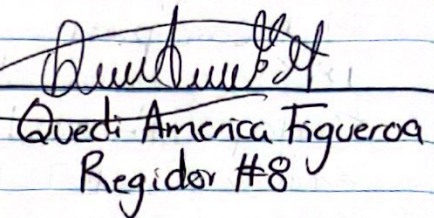 Quedi America Figueroa
Regidor #8